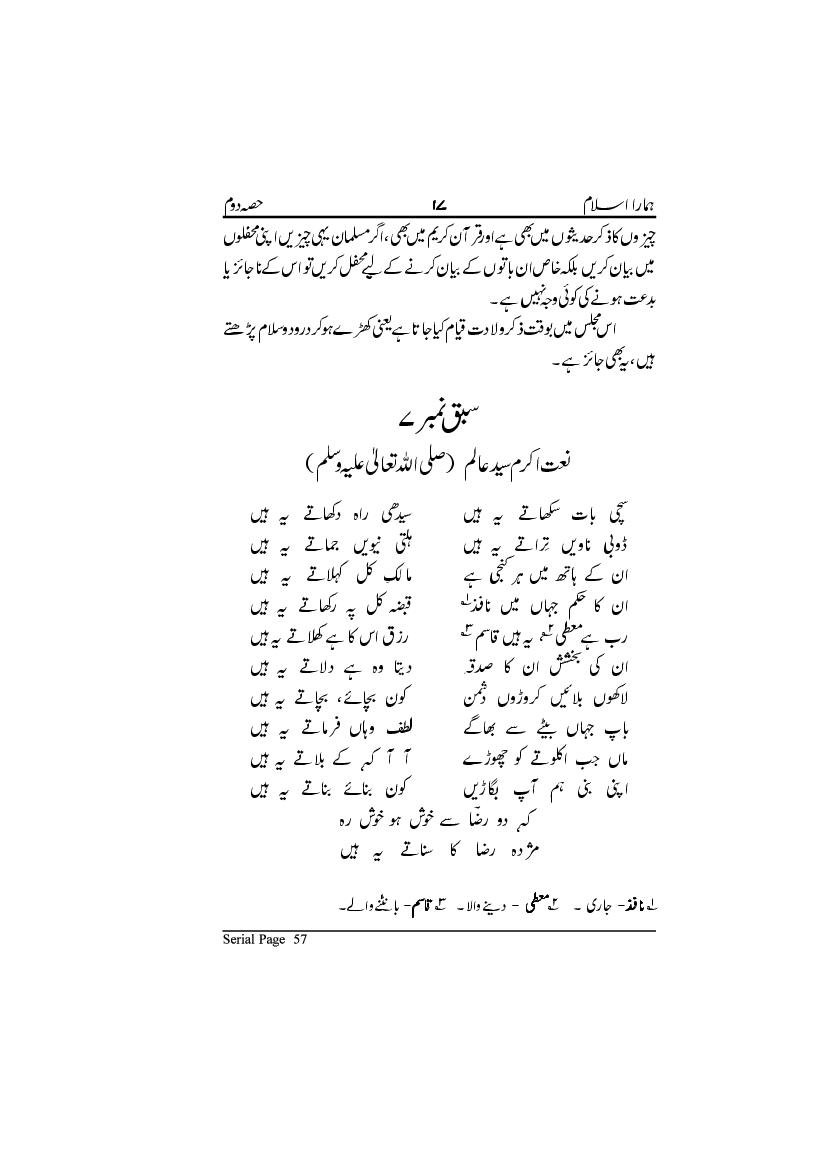 ہمارا اسلام ۱۷ حصہ دوم
چیزوں کا ذکر حدیثوں میں بھی ہے اور قرآن کریم میں بھی، اگر مسلمان یہی چیزیں اپنی محفلوں
میں بیان کریں بلکہ خاص ان باتوں کے بیان کرنے کے لیے محفل کریں تو اس کے ناجائز یا
بدعت ہونے کی کوئی وجہ نہیں ہے۔
اس مجلس میں بوقت ذکر ولادت قیام کیا جاتا ہے یعنی کھڑے ہو کر درود وسلام پڑھتے
ہیں، یہ بھی جائز ہے۔
سبق نمبر ۷
نعت اکرم سید عالم (صلی اللہ تعالیٰ علیہ وسلم)
سچی بات سکھاتے یہ ہیں سیدھی راہ دکھاتے یہ ہیں
ڈوبی ناویں تِراتے یہ ہیں ہلتی نیویں جماتے یہ ہیں
ان کے ہاتھ میں ہر کنجی ہے مالکِ کل کہلاتے یہ ہیں
ان کا حکم جہاں میں نافذ۱؎ قبضہ کل پہ رکھاتے یہ ہیں
رب ہے معطی۲؎ یہ ہیں قاسم۳؎ رزق اس کا ہے کھلاتے یہ ہیں
ان کی بخشش ان کا صدقہ دیتا وہ ہے دلاتے یہ ہیں
لاکھوں بلائیں کروڑوں دشمن کون بچائے، بچاتے یہ ہیں
باپ جہاں بیٹے سے بھاگے لطف وہاں فرماتے یہ ہیں
ماں جب اکلوتے کو چھوڑے آ آ کہہ کے بلاتے یہ ہیں
اپنی بنی ہم آپ بگاڑیں کون بنائے بناتے یہ ہیں
کہہ دو رضاؔ سے خوش ہو خوش رہ
مژدہ رضا کا سناتے یہ ہیں
۱؎ نافذ- جاری ۔ ۲؎ معطی - دینے والا۔ ۳؎ قاسم- بانٹنے والے۔
Serial Page 57